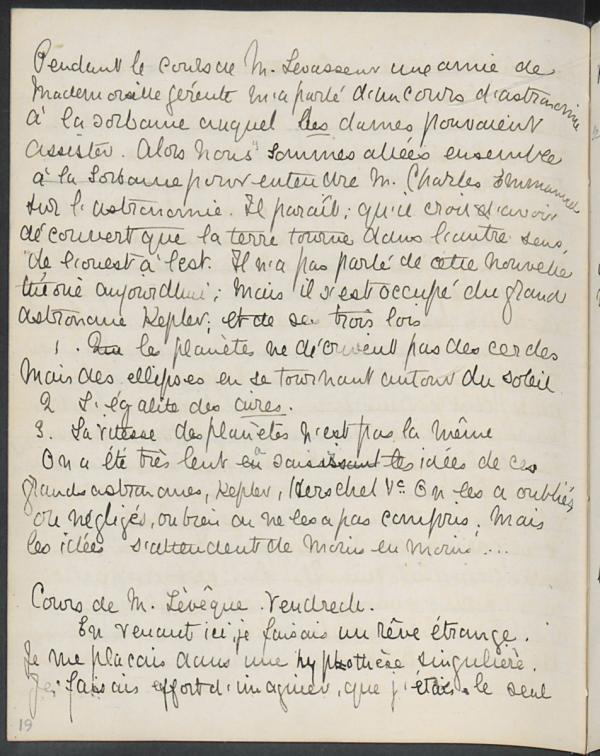 Pendant le cours de M. Levasseur une amie de
Mademoiselle gérente m'a parlé d'un cours d'astronomie
à la Sorbonne auquel les dames pouvaient
assister. Alors nous sommes allées ensemble
à la Sorbonne pour entendre M. Charles Emmanuel
sur l'astronomie. Il paraît, qu'il croit d'avoir
découvert que la terre tourne dans l'autre sens,
de l'ouest à l'est. Il n'a pas parlé de cette nouvelle
théorie aujourdhui; mais il s'est occupé du grand
astronome Kepler, et de ses trois lois
1. les planètes ne décrivent pas des cercles
mais des ellipses en se tournant autour du soleil
2 L'égalité des aires.
3. La vitesse des planètes n'est pas la même
On a été très lent en saisissant les idées de ces
grands astronomes, Kepler, Herschel &c On les a oubliés
ou négligés, ou bien on ne les a pas compris; mais
les idées s'attendent de moins en moins ...
Cours de M. Lévêque. Vendredi.
En venant ici, je faisais un rêve étrange.
Je me plaçais dans une hypothèse singulière.
Je faisais effort d'imaginer, que j'étais le seul
19